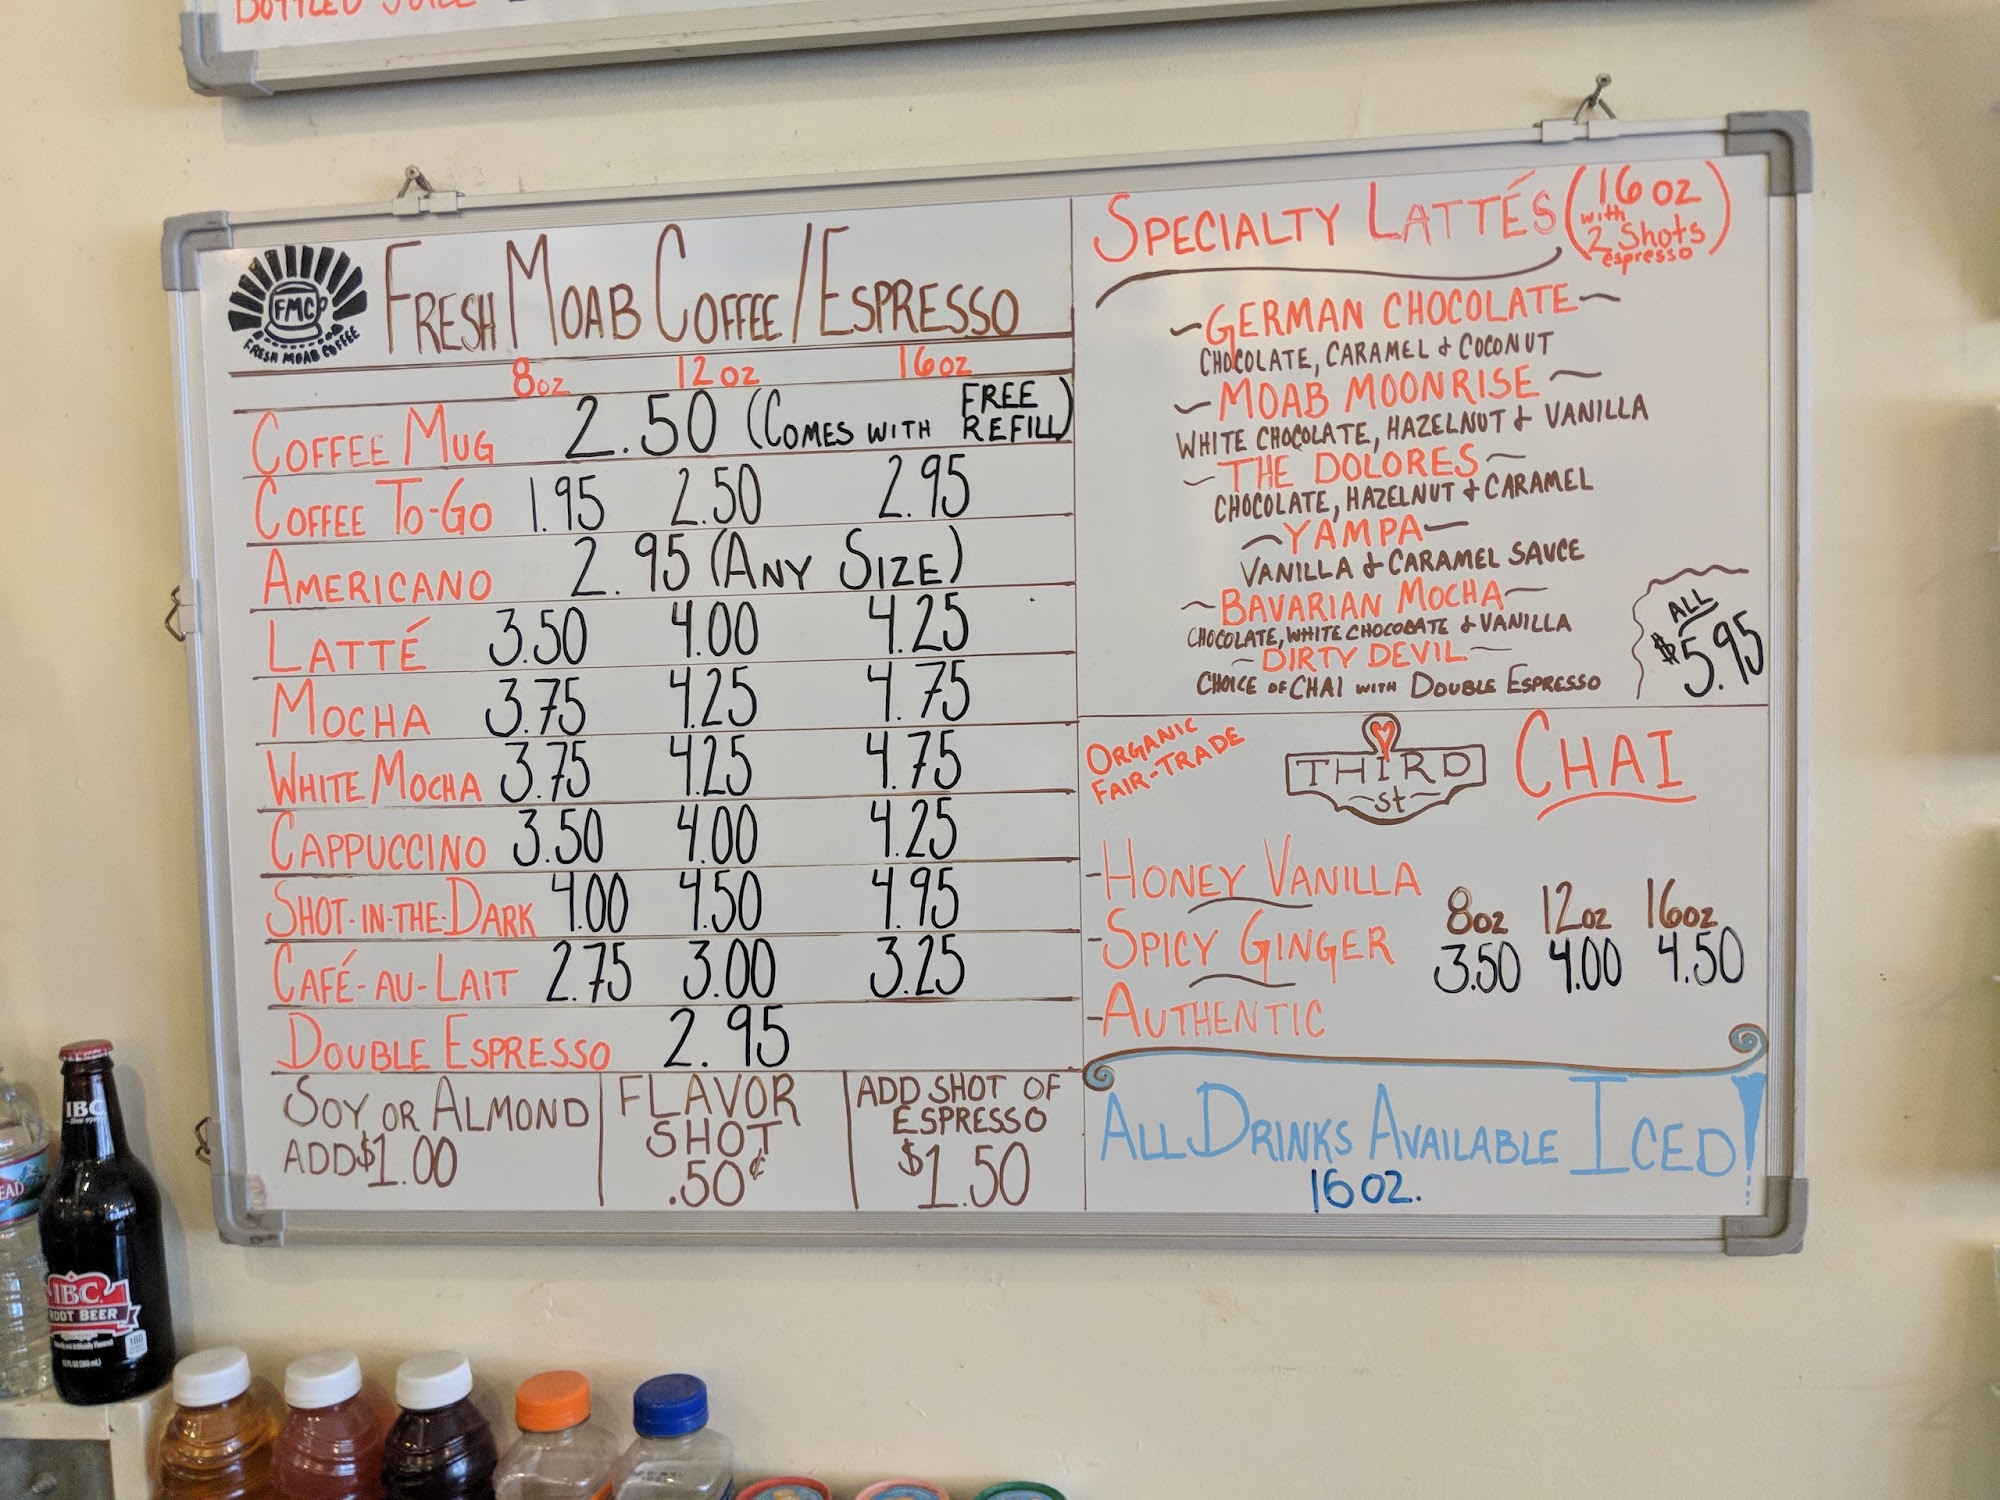 BOTTLED JUICE
FMC
FRESH MOAB COFFEE
FRESH MOAB COFFEE/ESPRESSO
8oz 12oz 16oz
COFFEE MUG 2.50 (COMES WITH FREE REFILL)
COFFEE TO-GO 1.95 2.50 2.95
AMERICANO 2.95 (ANY SIZE)
LATTÉ 3.50 4.00 4.25
MOCHA 3.75 4.25 4.75
WHITE MOCHA 3.75 4.25 4.75
CAPPUCCINO 3.50 4.00 4.25
SHOT-IN-THE-DARK 4.00 4.50 4.95
CAFÉ-AU-LAIT 2.75 3.00 3.25
DOUBLE ESPRESSO 2.95
SOY OR ALMOND
ADD $1.00
FLAVOR
SHOT
.50¢
ADD SHOT OF
ESPRESSO
$1.50
SPECIALTY LATTÉS (16oz
with
2 Shots
espresso)
~GERMAN CHOCOLATE~
CHOCOLATE, CARAMEL & COCONUT
~MOAB MOONRISE~
WHITE CHOCOLATE, HAZELNUT & VANILLA
~THE DOLORES~
CHOCOLATE, HAZELNUT & CARAMEL
~YAMPA~
VANILLA & CARAMEL SAUCE
~BAVARIAN MOCHA~
CHOCOLATE, WHITE CHOCOBATE & VANILLA
~DIRTY DEVIL~
CHOICE OF CHAI WITH DOUBLE ESPRESSO
ALL
$5.95
ORGANIC
FAIR-TRADE
THIRD
~st~
CHAI
-HONEY VANILLA
-SPICY GINGER
-AUTHENTIC
8oz 12oz 16oz
3.50 4.00 4.50
ALL DRINKS AVAILABLE ICED!
16 OZ.
IBC
IBC
ROOT BEER
160